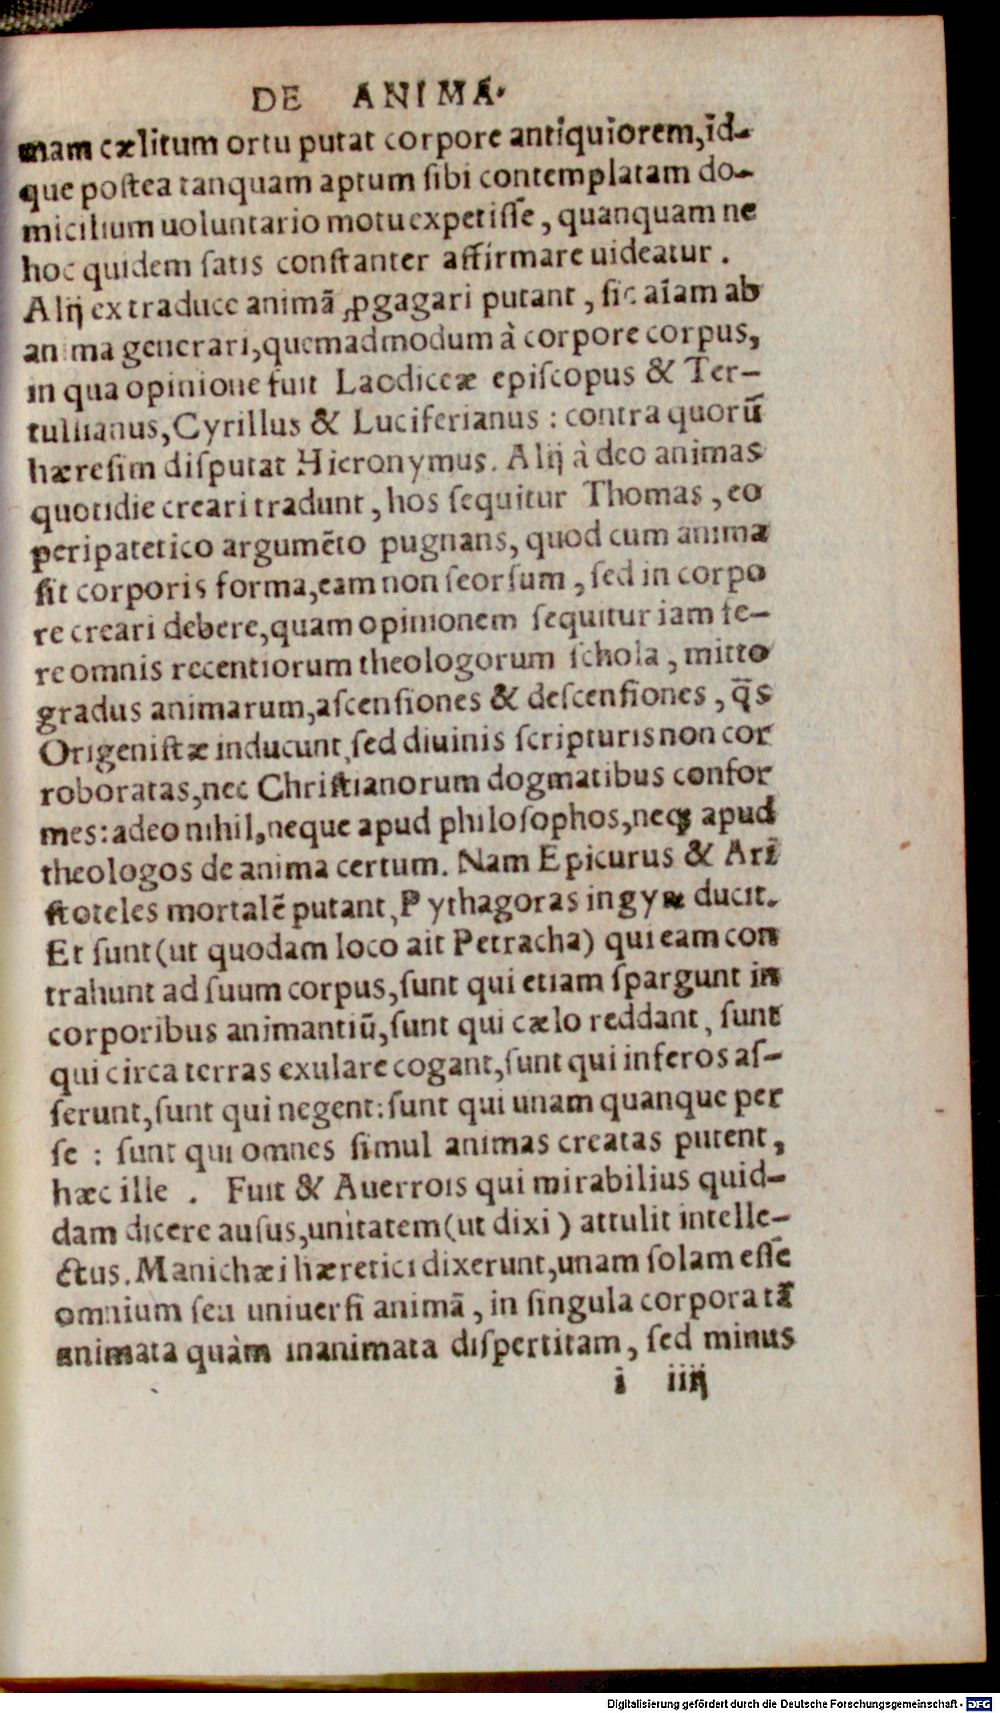 DE ANIMA.
mam cælitum ortu putat corpore antiquiorem, id-
que postea tanquam aptum sibi contemplatam do-
micilium uoluntario motu expetisse, quanquam ne
hoc quidem satis constanter affirmare uideatur.
Alij ex traduce animã ꝓgagari putant, sic aĩam ab
anima generari, quemadmodum à corpore corpus,
in qua opinione fuit Laodiceæ episcopus & Ter-
tullianus, Cyrillus & Luciferianus : contra quorũ
hæresim disputat Hieronymus. Alij à deo animas
quotidie creari tradunt, hos sequitur Thomas, eo
peripatetico argumẽto pugnans, quod cum anima
sit corporis forma, eam non seorsum, sed in corpo
re creari debere, quam opinionem sequitur iam fe-
re omnis recentiorum theologorum schola, mitto
gradus animarum, ascensiones & descensiones, q̃s
Origenistæ inducunt, sed diuinis scripturis non cor
roboratas, nec Christianorum dogmatibus confor
mes: adeo nihil, neque apud philosophos, neqꝫ apud
theologos de anima certum. Nam Epicurus & Ari
stoteles mortalẽ putant, Pythagoras in gyrũ ducit.
Et sunt (ut quodam loco ait Petracha) qui eam con
trahunt ad suum corpus, sunt qui etiam spargunt in
corporibus animantiũ, sunt qui cælo reddant, sunt
qui circa terras exulare cogant, sunt qui inferos as-
serunt, sunt qui negent: sunt qui unam quanque per
se : sunt qui omnes simul animas creatas putent,
hæc ille . Fuit & Auerrois qui mirabilius quid-
dam dicere ausus, unitatem (ut dixi) attulit intelle-
ctus. Manichæi hæretici dixerunt, unam solam esse
omnium seu uniuersi animã, in singula corpora tã
animata quàm inanimata dispertitam, sed minus
i iiij
Digitalisierung gefördert durch die Deutsche Forschungsgemeinschaft - DFG